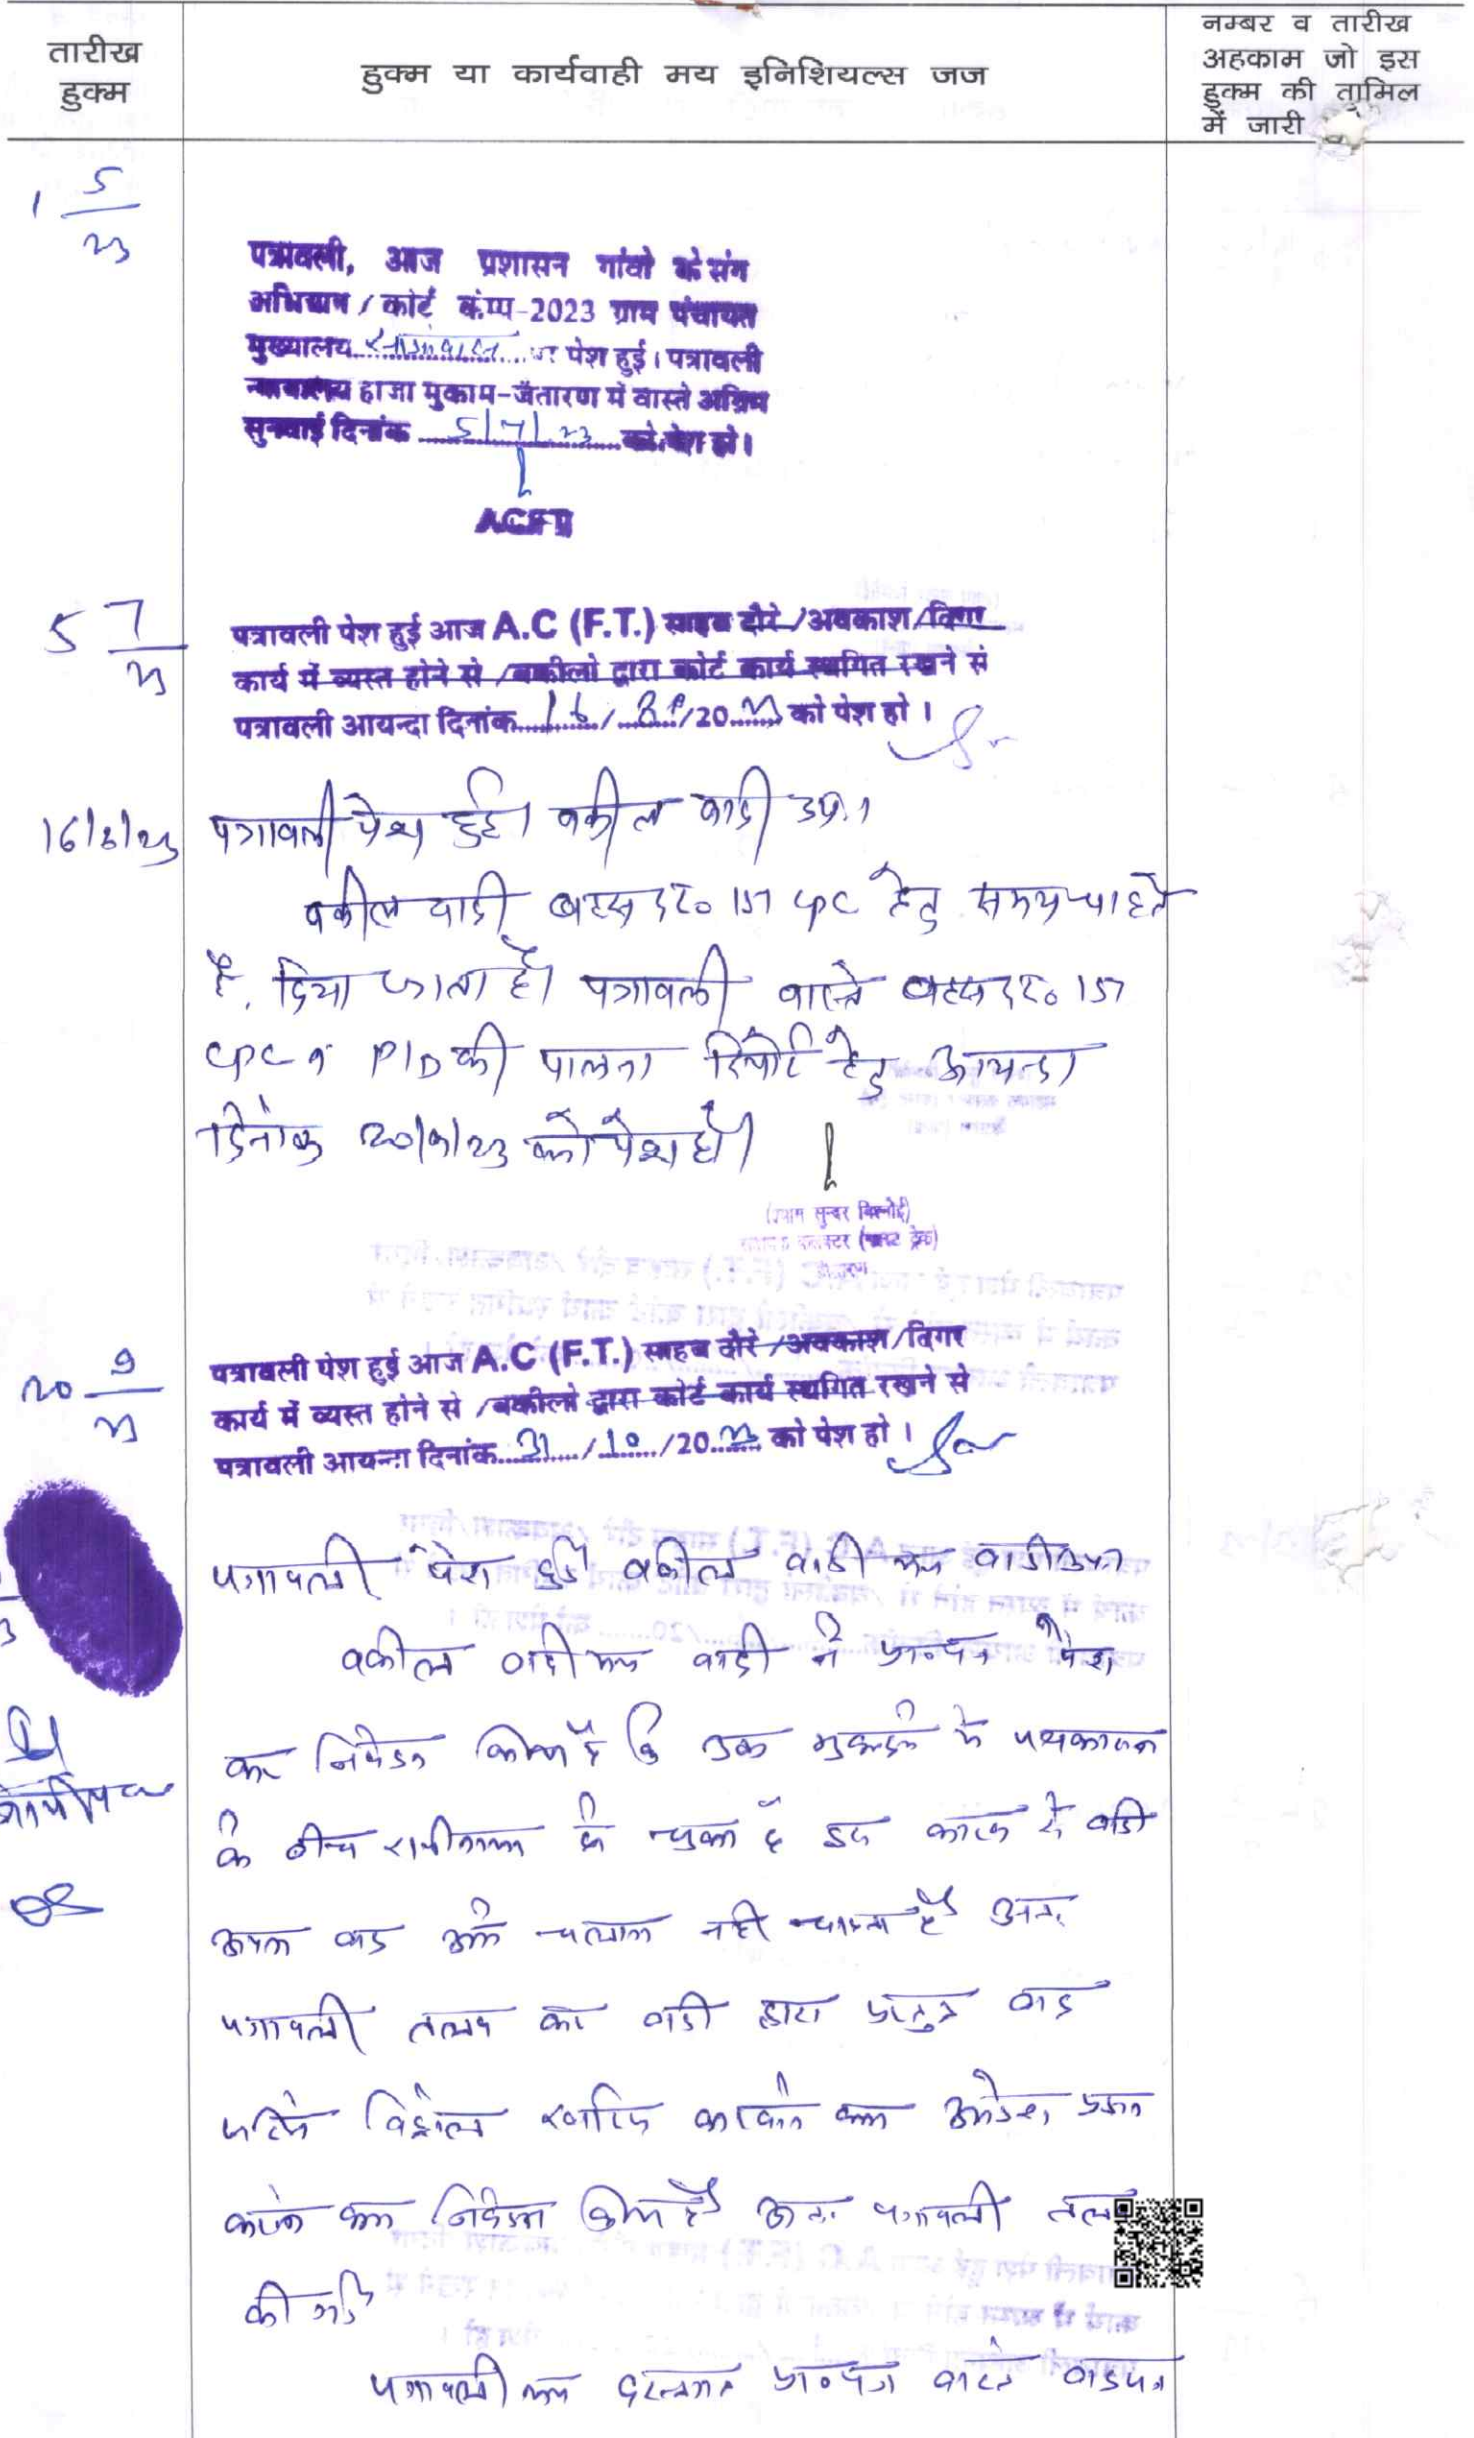 तारीख
हुक्म
हुक्म या कार्यवाही मय इनिशियल्स जज
नम्बर व तारीख
अहकाम जो इस
हुक्म की तामिल
में जारी
1 5/23
पत्रावली, आज प्रशासन गांवो के संग
अभियान / कोर्ट कंम्प-2023 ग्राम पंचायत
मुख्यालय पर पेश हुई। पत्रावली
न्यायालय हाजा मुकाम-जैतारण में वास्ते अग्रिम
सुनवाई दिनांक 5/7/23 को पेश हो।
ACFT
5 7/23
पत्रावली पेश हुई आज A.C (F.T.) साहब दौरे /अवकाश/दिगर
कार्य में व्यस्त होने से /वकीलो द्वारा कोर्ट कार्य स्थगित रखने से
पत्रावली आयन्दा दिनांक 16/8/2023 को पेश हो।
16/8/23
पत्रावली पेश हुई। वकील वादी उप.।
वकील वादी बहस द० 151 CPC हेतु समय चाहते
है, दिया जाता है। पत्रावली वास्ते बहस द० 151
CPC व P/D की पालना रिपोर्ट हेतु आयन्दा
दिनांक 20/9/23 को पेश हो।
(श्याम सुन्दर बिश्नोई)
कलक्टर (फास्ट ट्रेक)
20 9/23
पत्रावली पेश हुई आज A.C (F.T.) साहब दौरे /अवकाश/दिगर
कार्य में व्यस्त होने से /वकीलो द्वारा कोर्ट कार्य स्थगित रखने से
पत्रावली आयन्दा दिनांक 31/10/2023 को पेश हो।
पत्रावली पेश हुई वकील वादी मय वादी उप
वकील वादी मय वादी ने पेश
कर निवेदन किया है कि
के बीच राजीनामा हो चुका है इस कारण से वादी
अपना वाद आगे चलाना नही चाहता है अतः
पत्रावली तलब कर वादी द्वारा प्रस्तुत वाद
खारिज करने का आदेश
करने का निवेदन किया है अतः पत्रावली तलब
की गई
पत्रावली मय